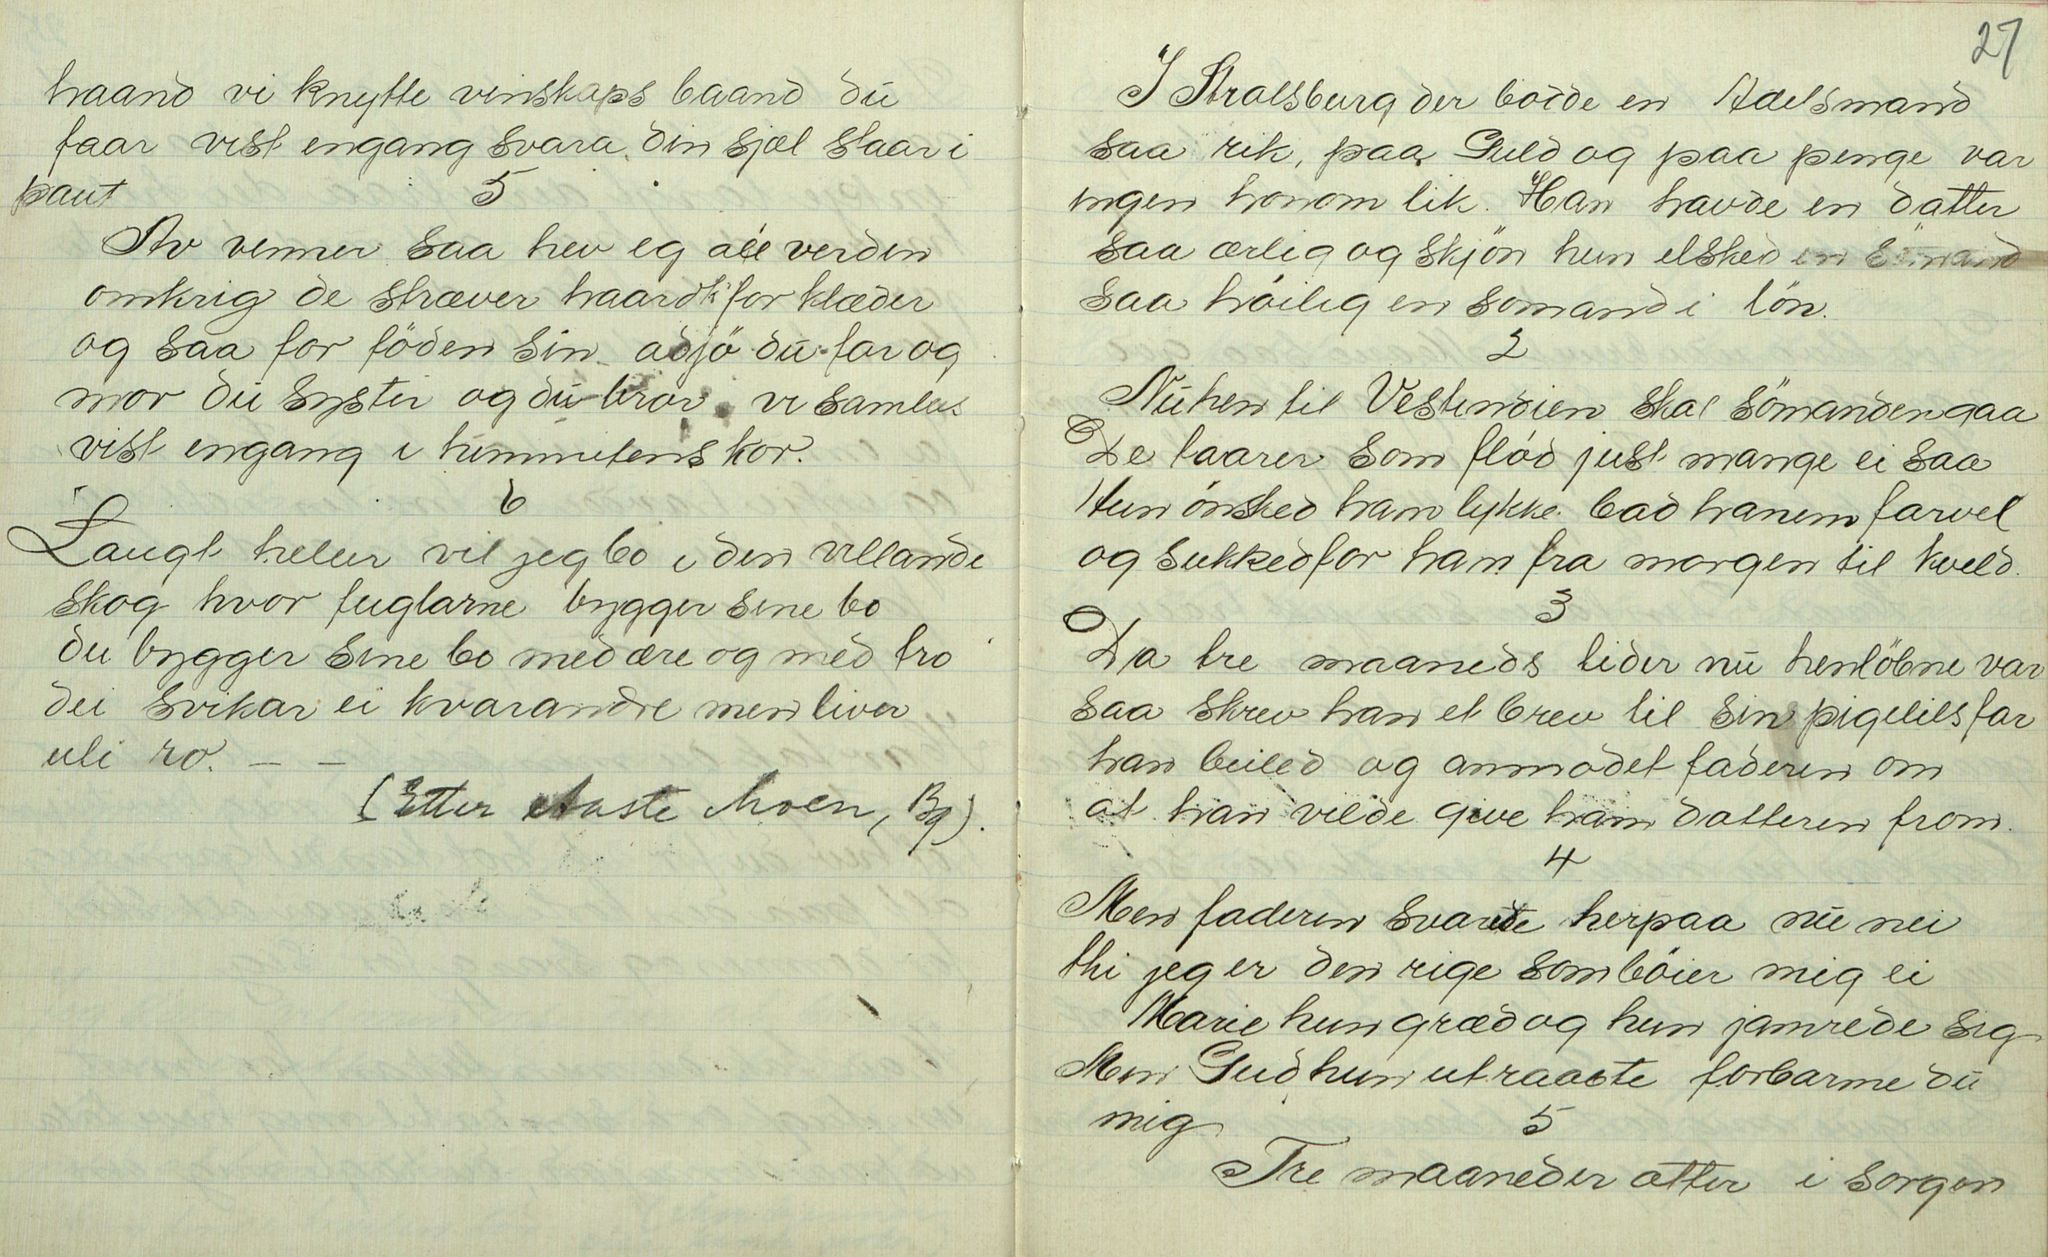 haand vi knytte vinskaps baand du
faar vist engang svara din sjæl staar i
pant
5
Av venner saa hev eg all verden
omkrig de stræver haardt for klæder
og saa for föden sin adjö du far og
mor du syster og du bror vi samlas
vist engang i himmelens kor.
6
Langt heller vil jeg bo i den villande
skog hvor fuglarne bygger sine bo
du bygger sine bo med ære og med tro
dei svikar ei kvarandre men liver
uti ro. — —
(Etter Aaste Moen, Bø).
27
I Stralsburg der boede en Adelsmand
saa rik, paa Guld og paa penge var
ingen honom lik. Han havde en datter
saa ærlig og skjön hun elsked en
saa höilig en somand i lön.
2
Nu hen til Vestindien skal sömanden gaa
De taarer som flöd just mange ei saa
Hun önsked ham lykke bad hanem farvel
og sukked for ham fra morgen til kveld.
3
Da tre maaneds tider nu henlöbne var
saa skrev han et brev til sin pigelils far
han beiled og anmodet faderen om
at han vilde give ham datteren from.
4
Men faderen svarte herpaa nu nei
thi jeg er den rige som böier mig ei
Marie hun græd og hun jamrede sig
Men Gud hun utraabte forbarme du
mig
5
Tre maaneder atter i sorgen